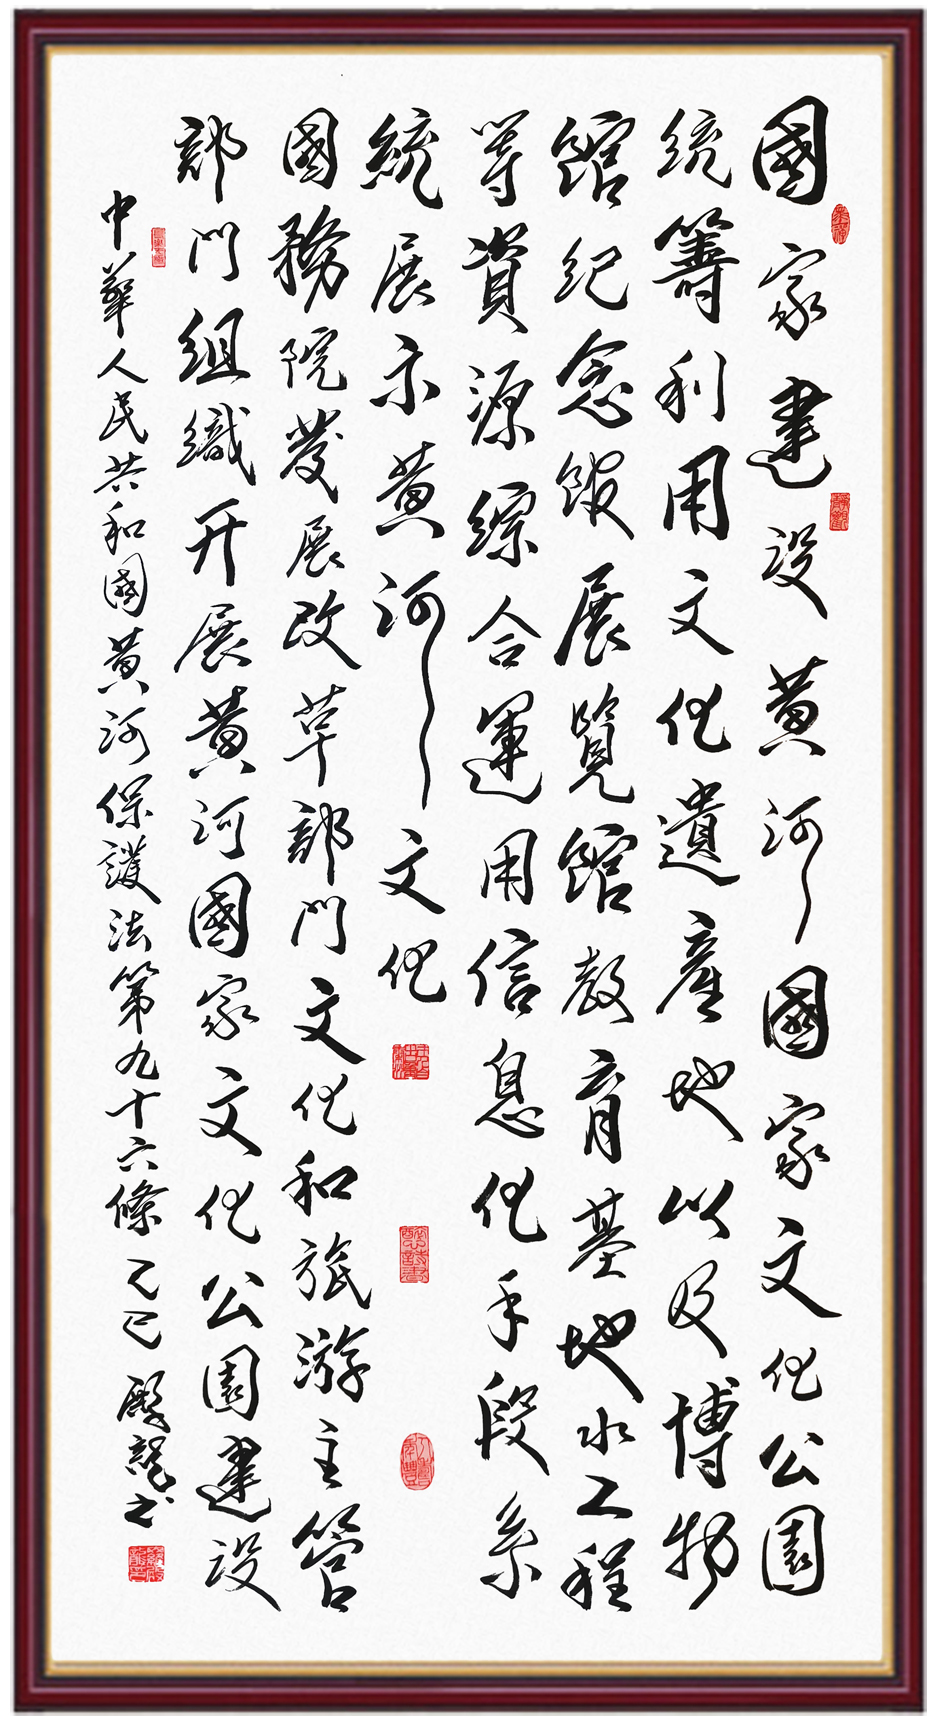 國家建设黄河國家文化公園
统籌利用文化遺産地以及博物
館纪念館展覽館教育基地水工程
等資源綜合運用信息化手段系
統展示黄河文化
國務院發展改革部门文化和旅游主管
部门組織开展黄河國家文化公園建设
中華人民共和國黄河保護法第九十六條 乙巳 殿龍书